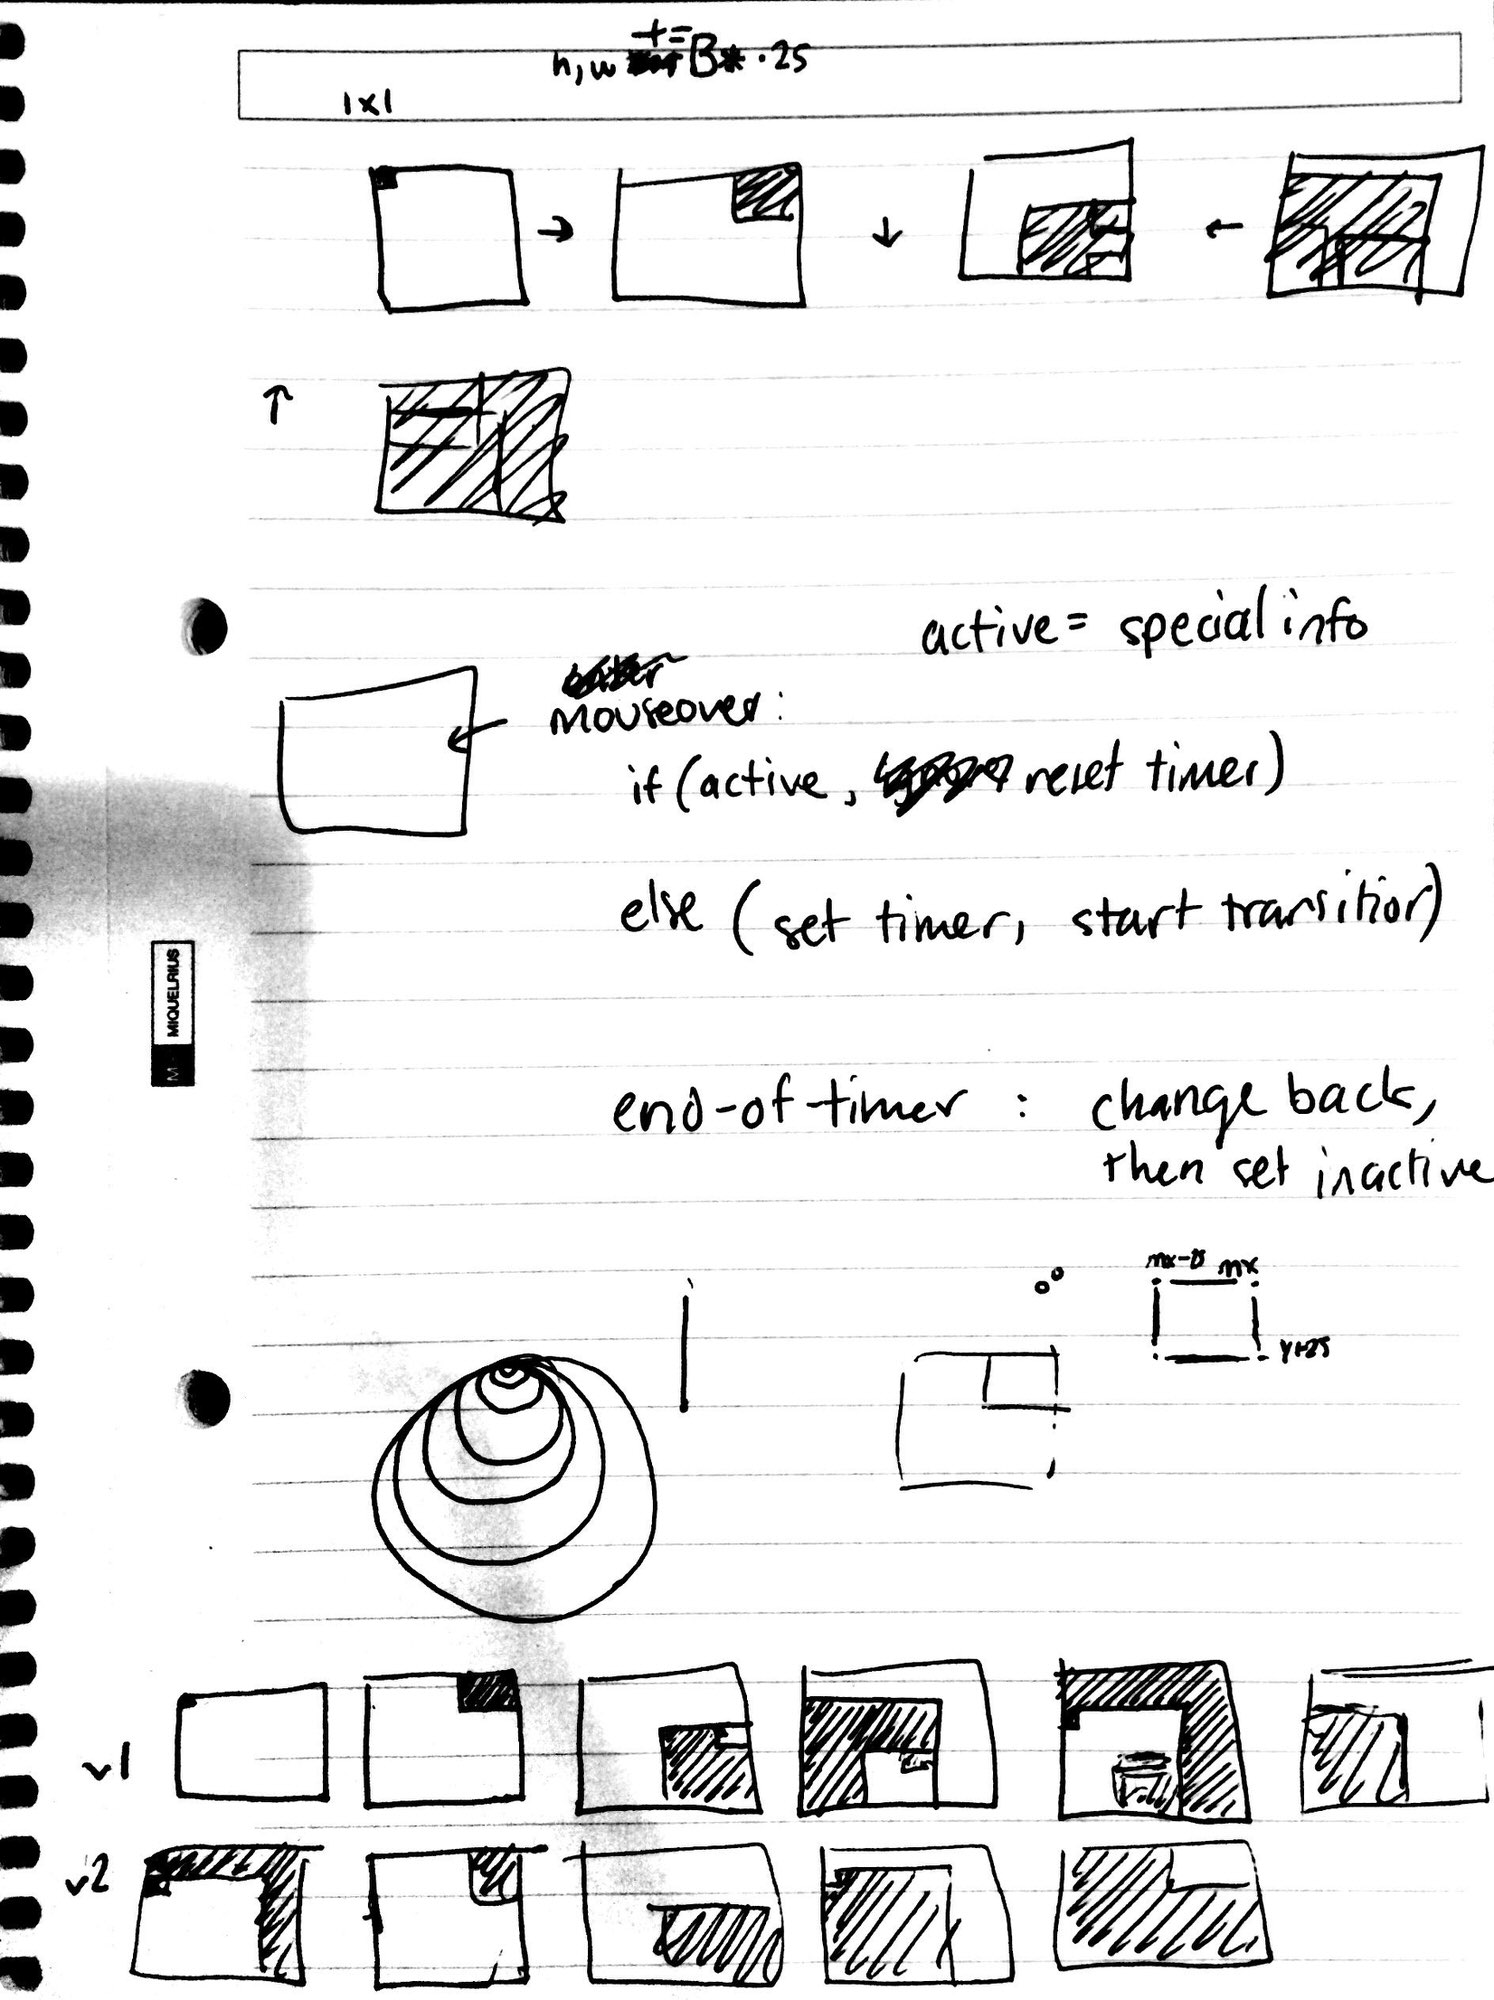 h,w += B* .25
1x1
active = special info
mouseover:
if (active, reset timer)
else (set timer, start transition)
MIQUELRIUS
M
end-of-timer : change back,
then set inactive
mx
y+25
v1
v2